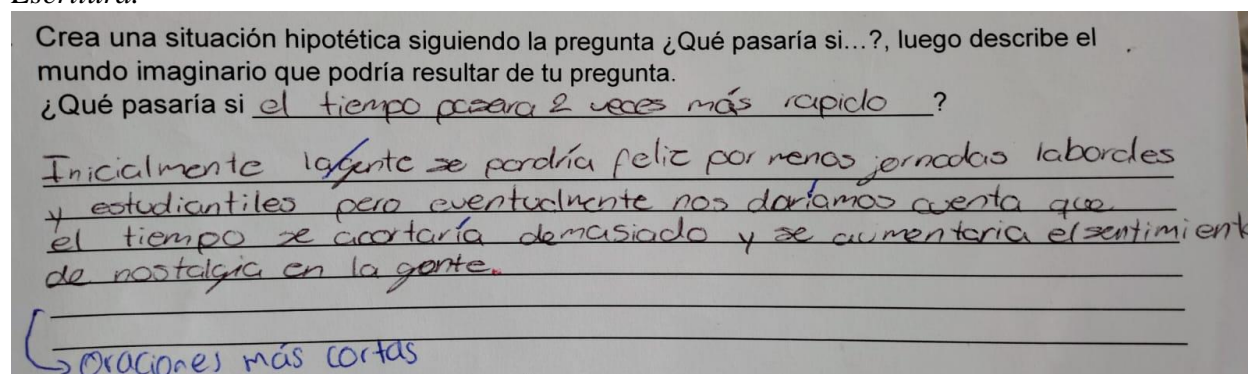 Crea una situación hipotética siguiendo la pregunta ¿Qué pasaría si...?, luego describe el
mundo imaginario que podría resultar de tu pregunta.
¿Qué pasaría si el tiempo pasara 2 veces más rapido ?
Inicialmente la gente se pondría feliz por menos jornadas laborales
y estudiantiles pero eventualmente nos daríamos cuenta que
el tiempo se acortaría demasiado y se aumentaria el sentimient
de nostalgia en la gente.
oraciones más cortas